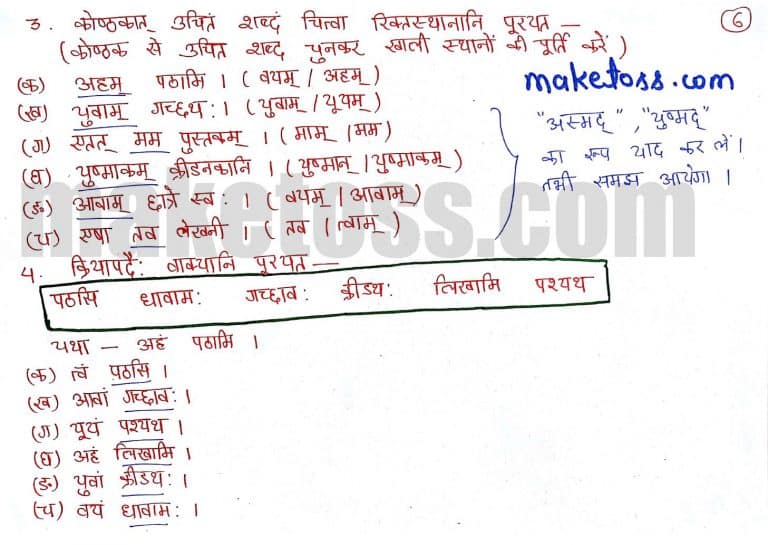 ३. कोष्ठकात् उचितं शब्दं चित्वा रिक्तस्थानानि पूरयत — ६
(कोष्ठक से उचित शब्द चुनकर खाली स्थानों की पूर्ति करें)
(क) अहम् पठामि । (वयम् / अहम्)
(ख) युवाम् गच्छथः । (युवाम् / यूयम्)
(ग) एतत् मम पुस्तकम् । (माम् / मम)
(घ) युष्माकम् क्रीडनकानि । (युष्मान् / युष्माकम्)
(ङ) आवाम् छात्रे स्वः । (वयम् / आवाम्)
(च) एषा तव लेखनी । (तव / त्वाम्)
maketoss.com
"अस्मद्", "युष्मद्"
का रूप याद कर लें।
तभी समझ आयेगा ।
maketoss.com
४. क्रियापदैः वाक्यानि पूरयत —
पठसि धावामः गच्छावः क्रीडथः लिखामि पश्यथ
यथा — अहं पठामि ।
(क) त्वं पठसि ।
(ख) आवां गच्छावः ।
(ग) यूयं पश्यथ ।
(घ) अहं लिखामि ।
(ङ) युवां क्रीडथः ।
(च) वयं धावामः ।